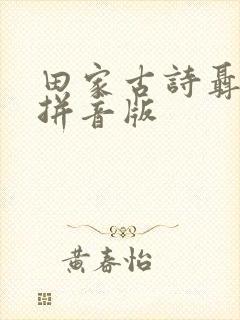 田家古詩聶
拼音版
黃春怡